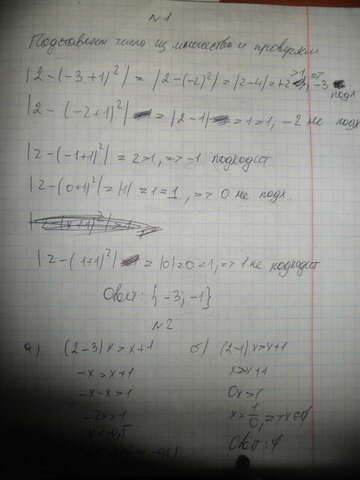 №1
Подставляем число из множества и проверяем
|2-(-3+1)²| = |2-(-2)²| = |2-4| = +2 >1, => -3 подх
|2-(-2+1)²| = |2-1| = 1=1, -2 не подх
|2-(-1+1)²| = 2>1, => -1 подходит
|2-(0+1)²| = |1| = 1=1, => 0 не подх.
|2-(1+1)²| = |0|=0=1, => 1 не подходит
Ответ: {-3; -1}
№2
а) (2-3)x > x+1 б) (2-1)x > x+1
-x > x+1 x > x+1
-x-x > 1 0x > 1
-2x > 1 x > 1/0, => x∈∅
x < -0,5 Ответ: ∅